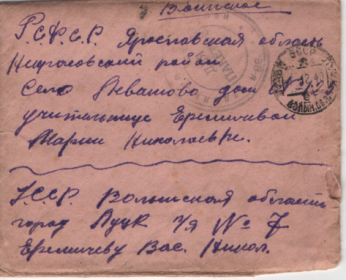 Воинское
Р.С.Ф.С.Р. Ярославская область
Некрасовский район
Село Левашово дом
учительнице Еремичевой
Марии Николаевне.
УССР. Волынская область
город Луцк п/я № 7
Еремичеву Вас. Никол.